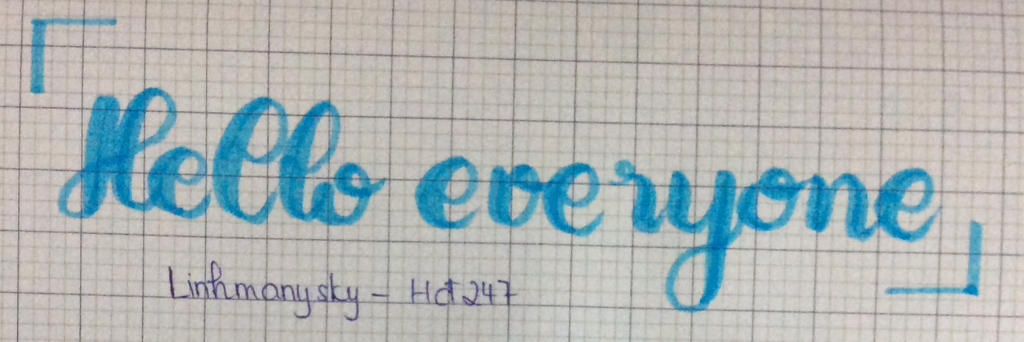 Hello everyone
Linhmanysky - Hd247